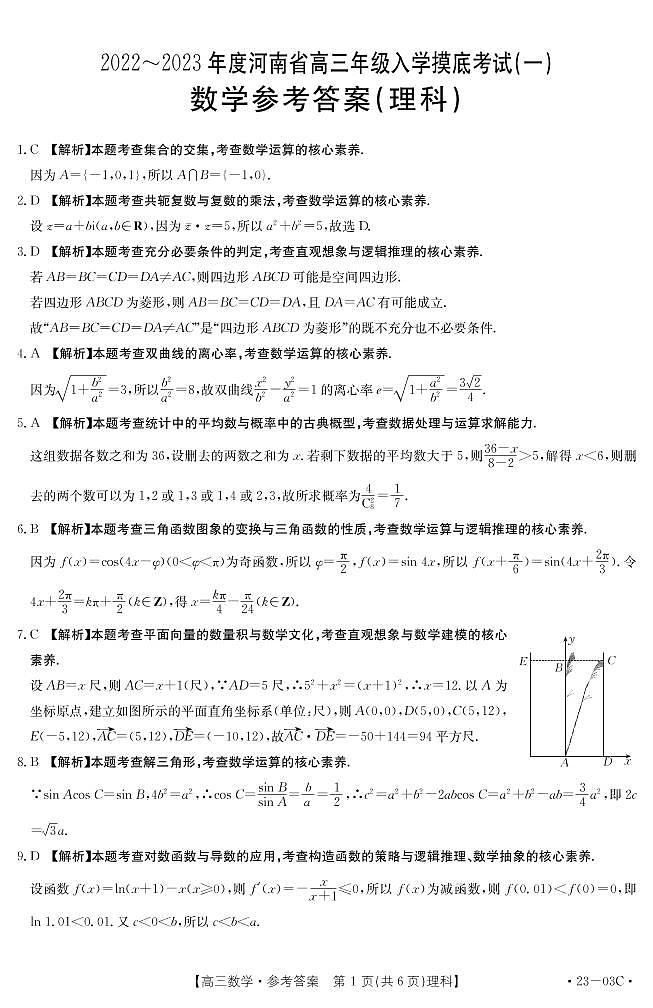 2022～2023年度河南省高三年级入学摸底考试(一)
数学参考答案(理科)
1. C 【解析】本题考查集合的交集,考查数学运算的核心素养.
因为 A={-1,0,1},所以 A∩B={-1,0}.
2. D 【解析】本题考查共轭复数与复数的乘法,考查数学运算的核心素养.
设 z=a+bi(a,b∈R),因为 z̄·z=5,所以 a²+b²=5,故选 D.
3. D 【解析】本题考查充分必要条件的判定,考查直观想象与逻辑推理的核心素养.
若 AB=BC=CD=DA≠AC,则四边形 ABCD 可能是空间四边形.
若四边形 ABCD 为菱形,则 AB=BC=CD=DA,且 DA=AC 有可能成立.
故“AB=BC=CD=DA≠AC”是“四边形 ABCD 为菱形”的既不充分也不必要条件.
4. A 【解析】本题考查双曲线的离心率,考查数学运算的核心素养.
因为√(1+b²/a²)=3,所以b²/a²=8,故双曲线x²/b²-y²/a²=1 的离心率 e=√(1+a²/b²)=3√2/4.
5. A 【解析】本题考查统计中的平均数与概率中的古典概型,考查数据处理与运算求解能力.
这组数据各数之和为 36,设删去的两数之和为 x. 若剩下数据的平均数大于 5,则(36-x)/(8-2)>5,解得 x<6,则删
去的两个数可以为 1,2 或 1,3 或 1,4 或 2,3,故所求概率为4/C₈²=1/7.
6. B 【解析】本题考查三角函数图象的变换与三角函数的性质,考查数学运算与逻辑推理的核心素养.
因为 f(x)=cos(4x-φ)(0<φ<π)为奇函数,所以 φ=π/2,f(x)=sin 4x,所以 f(x+π/6)=sin(4x+2π/3). 令
4x+2π/3=kπ+π/2(k∈Z),得 x=kπ/4-π/24(k∈Z).
7. C 【解析】本题考查平面向量的数量积与数学文化,考查直观想象与数学建模的核心
素养.
设 AB=x 尺,则 AC=x+1(尺),∵AD=5 尺,∴5²+x²=(x+1)²,∴x=12. 以 A 为
坐标原点,建立如图所示的平面直角坐标系(单位:尺),则 A(0,0),D(5,0),C(5,12),
E(-5,12),AC→=(5,12),DE→=(-10,12),故AC→·DE→=-50+144=94 平方尺.
y
E
B
C
A
D
x
8. B 【解析】本题考查解三角形,考查数学运算的核心素养.
∵sin Acos C=sin B,4b²=a²,∴cos C=sin B/sin A=b/a=1/2,∴c²=a²+b²-2abcos C=a²+b²-ab=3/4a²,即 2c
=√3a.
9. D 【解析】本题考查对数函数与导数的应用,考查构造函数的策略与逻辑推理、数学抽象的核心素养.
设函数 f(x)=ln(x+1)-x(x≥0),则 f′(x)=-x/(x+1)≤0,所以 f(x)为减函数,则 f(0.01)<f(0)=0,即
ln 1.01<0.01. 又 c<0<b,所以 c<b<a.
【高三数学·参考答案 第 1 页(共 6 页)理科】
·23-03C·